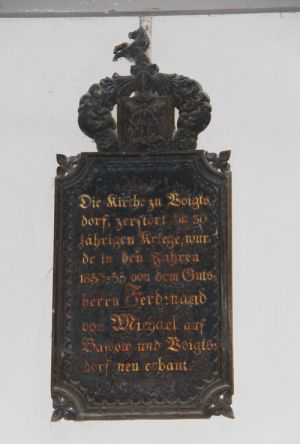 Die Kirche zu Voigts,
dorf, zerstört im 30
jährigen Kriege, wur,
de in den Jahren
1853-55 von dem Guts,
herrn Ferdinand
von Michael auf
und Voigts,
dorf neu erbaut.